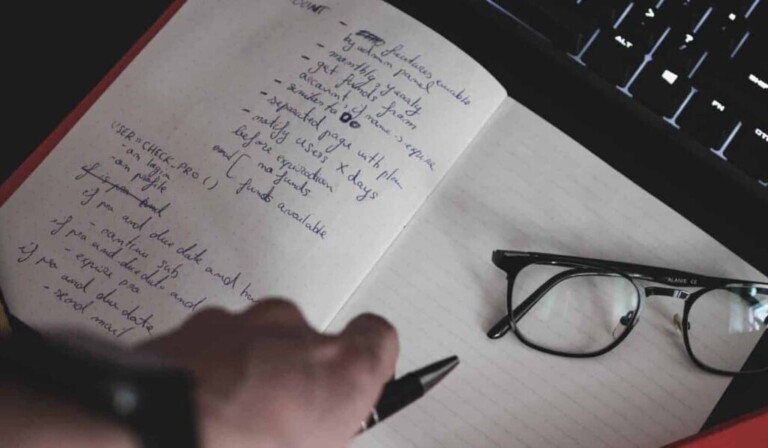 - features enable
by admin panel
- monthly, yearly
- get funds from
account, if name → expire
- similar to
- separated page with plan
- notify users X days
before expiration
and [ no funds
funds available
USER=CHECK_PRO()
- on login
- on profile
if pro and due date and
- continue sub
if pro and due date and
- expire pro
if pro and due date
- send mail
ALT
FN
ALANIE